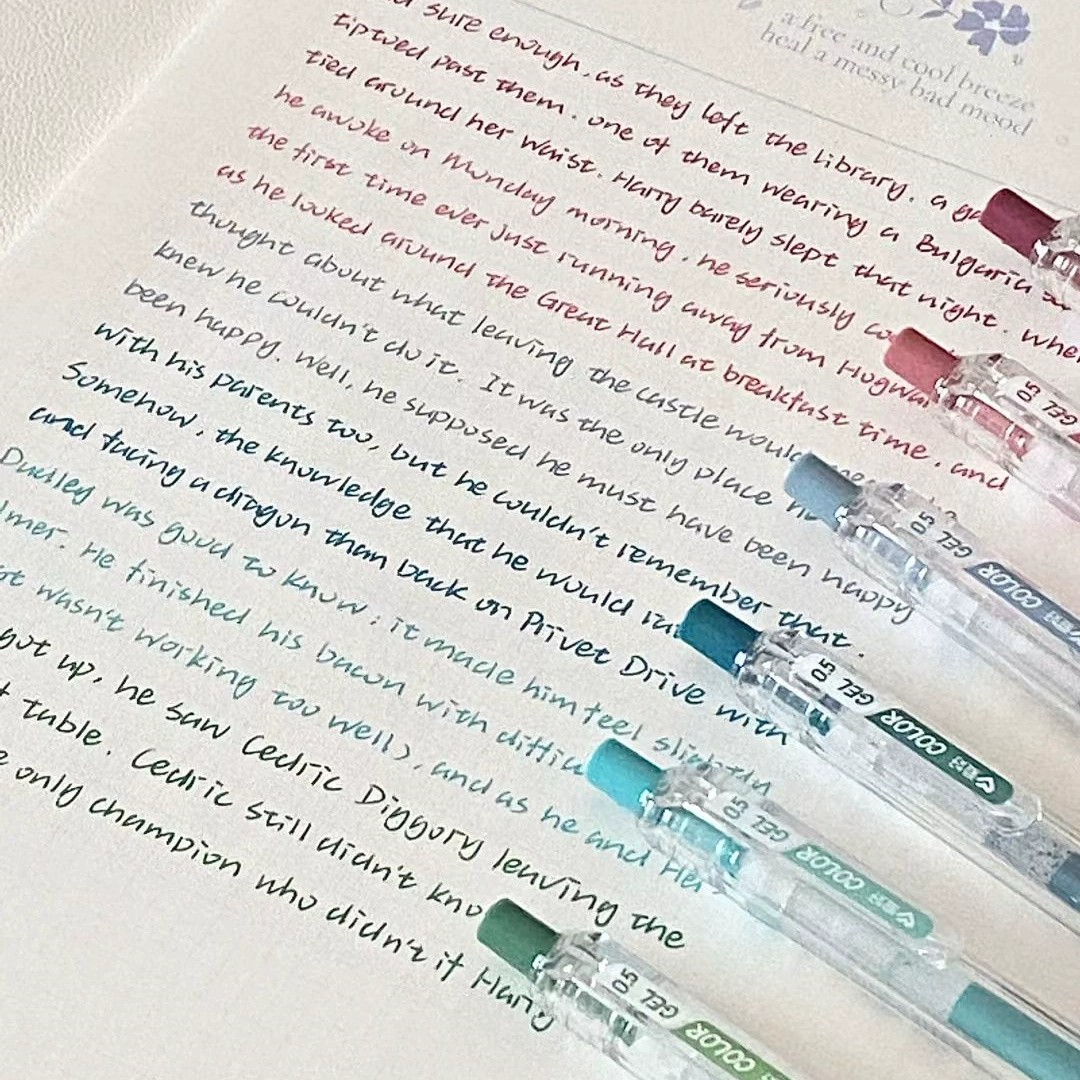 a free and cool breeze
heal a messy bad mood
sure enough, as they left the library, a
tiptoed past them, one of them wearing a Bulgaria
tied around her waist. Harry barely slept that night. when
he awoke on Monday morning, he seriously
the first time ever just running away from
as he looked around the Great Hall at breakfast time, and
thought about what leaving the castle would
knew he couldn't do it. It was the only place
been happy. well, he supposed he must have been happy
with his parents too, but he couldn't remember that.
Somehow, the knowledge that he would
and facing a dragon than back on Privet Drive with
Dudley was good to know; it made him feel slightly
He finished his bacon with
wasn't working too well), and as he and
got up, he saw Cedric Diggory leaving the
table. Cedric still didn't
only champion who didn't if Harry
GEL 05
GEL 05
COLOR
GEL 05
COLOR
GEL 05
COLOR
GEL 05
COLOR
GEL 05